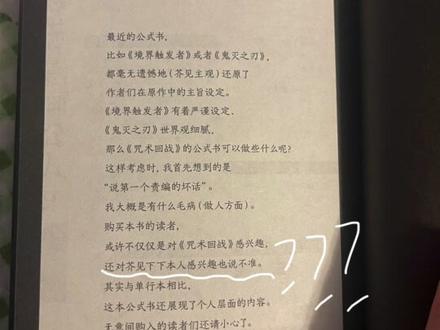 最近的公式书，
比如《境界触发者》或者《鬼灭之刃》，
都毫无遗憾地（芥见主观）还原了
作者们在原作中的主旨设定。
《境界触发者》有着严谨设定、
《鬼灭之刃》世界观细腻，
那么《咒术回战》的公式书可以做些什么呢？
这样考虑时，我首先想到的是
“说第一个责编的坏话”。
我大概是有什么毛病（做人方面）。
购买本书的读者，
或许不仅仅是对《咒术回战》感兴趣，
还对芥见下下本人感兴趣也说不准。
其实与单行本相比，
这本公式书还展现了个人层面的内容。
无意间购入的读者们还请小心了。
???